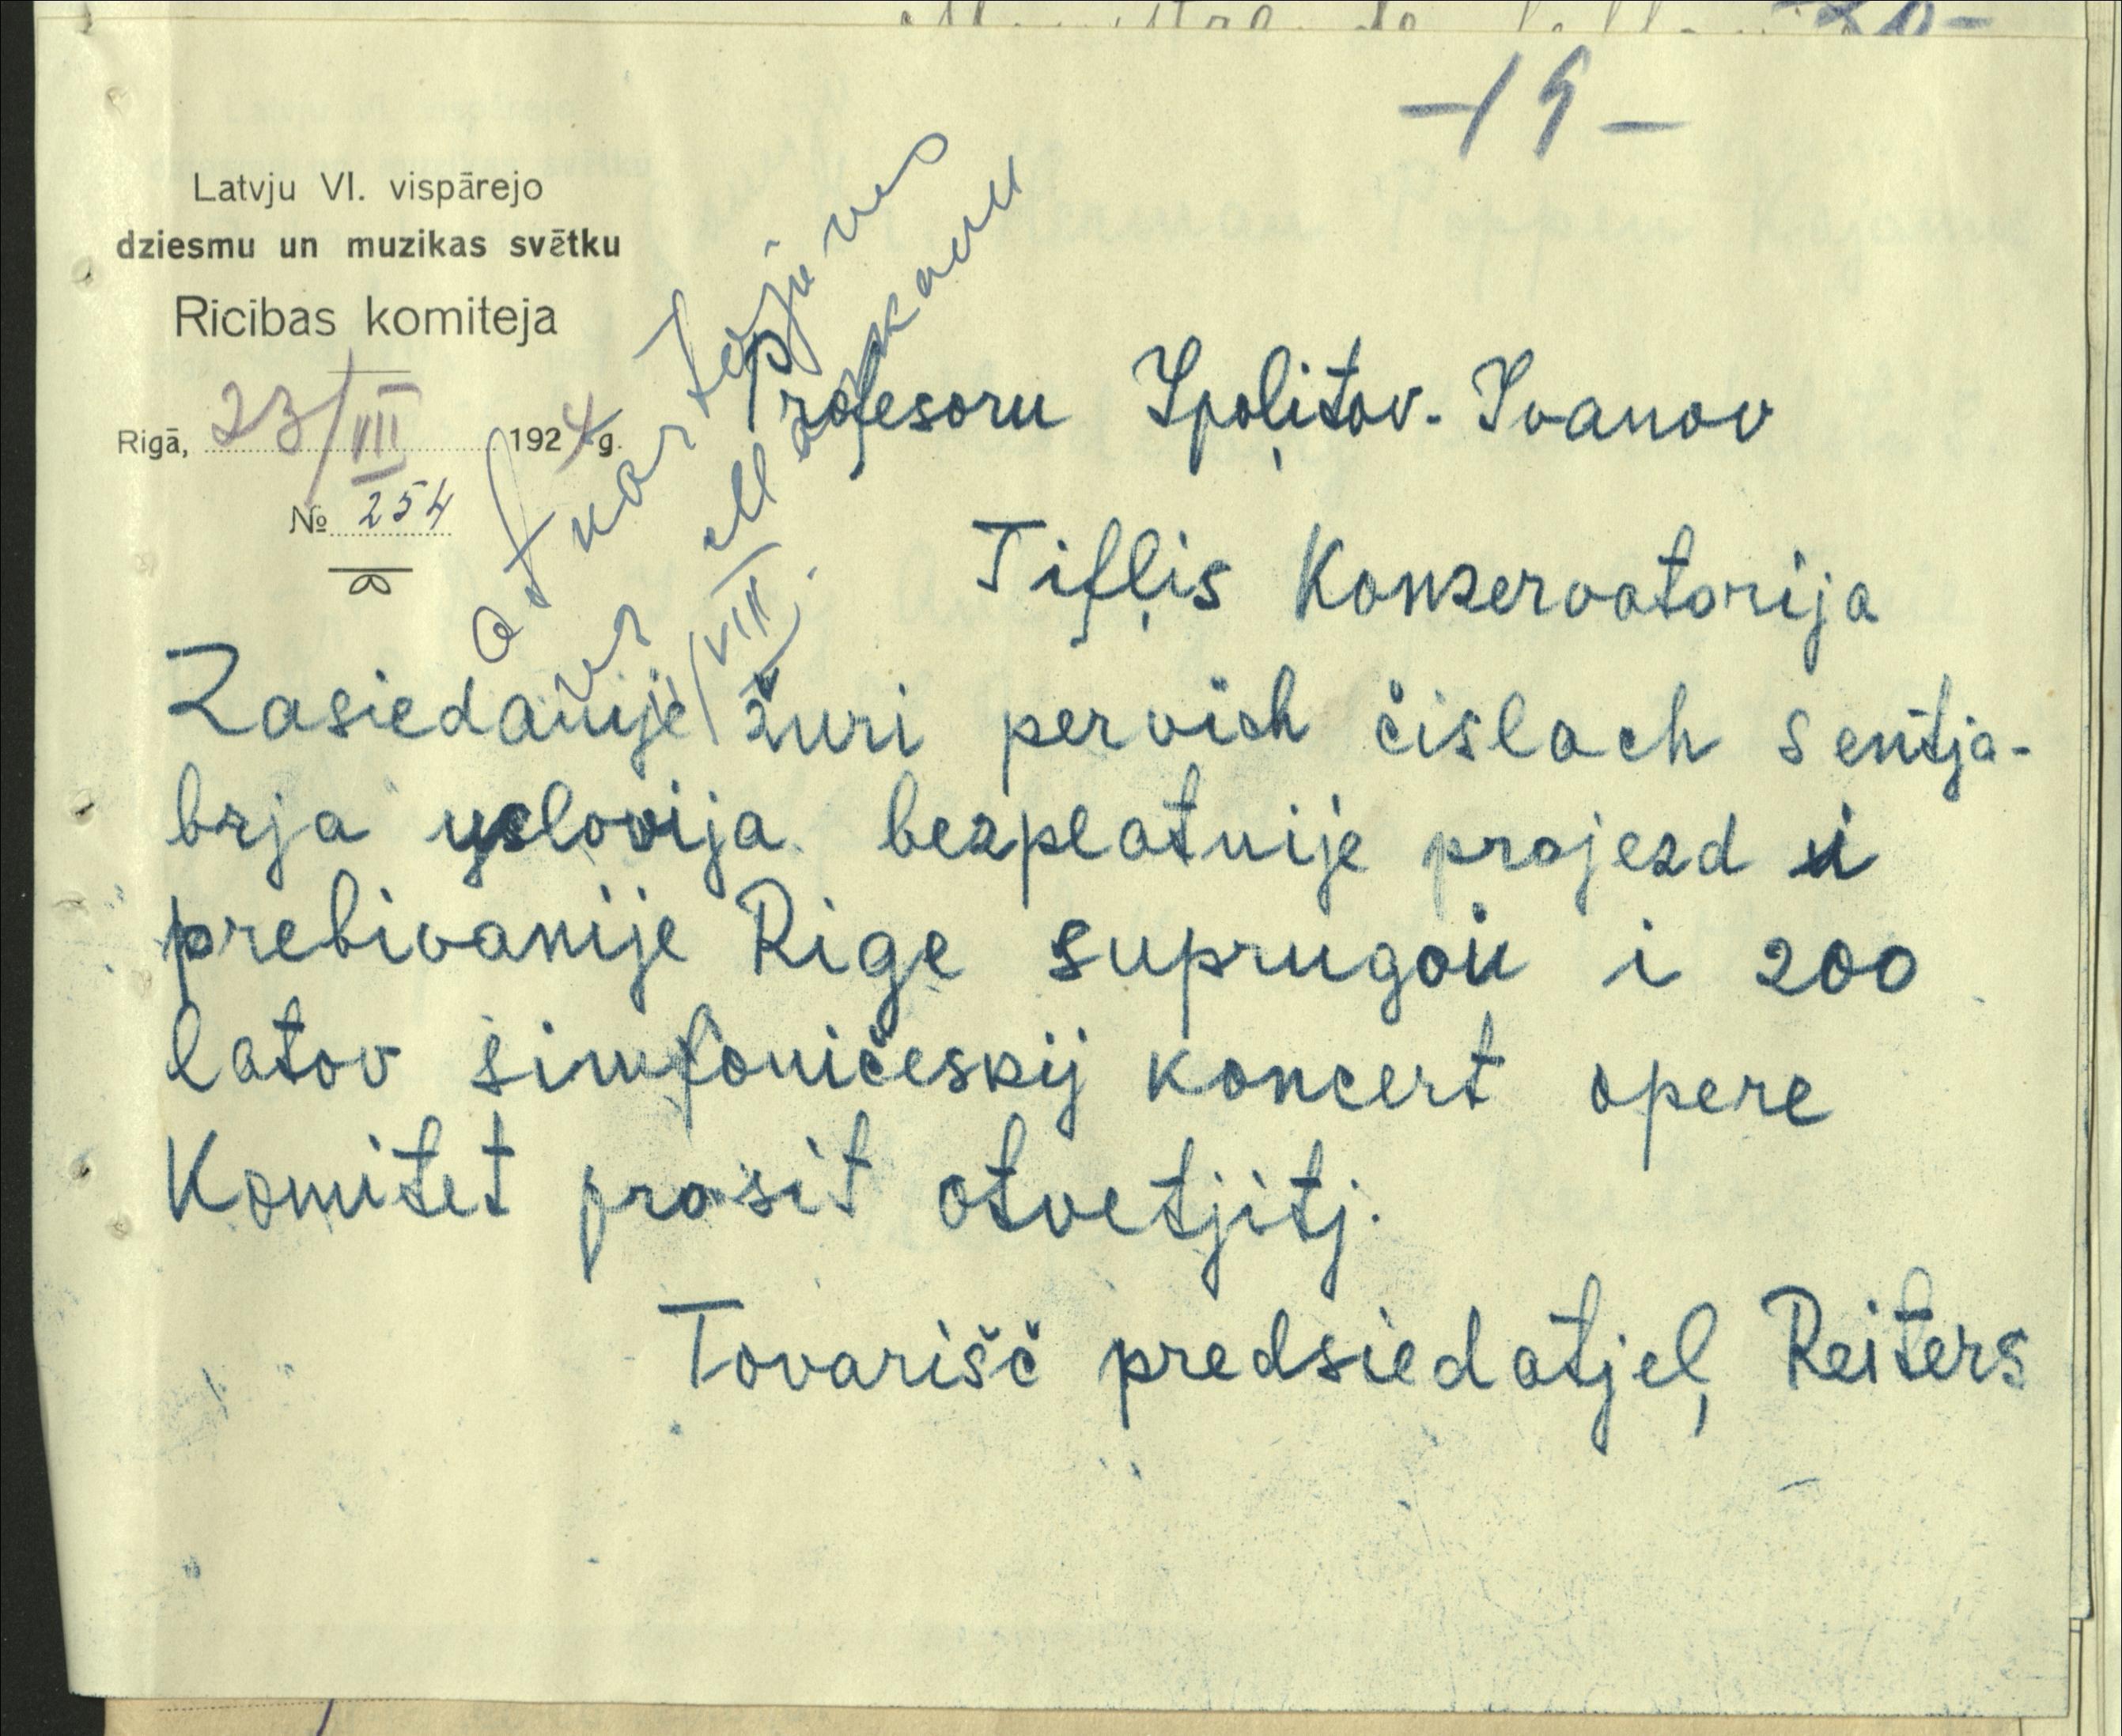 -19-
Latvju VI. vispārejo
dziesmu un muzikas svētku
Ricibas komiteja
Rigā, 23/VIII 1924 g.
№ 254
Profesoru Ipoļitov-Ivanov
Tifļis Konzervatorija
Zasiedanije žuri pervich čislach sentja-
brja uslovija bezplatnije projezd i
prebivanije Rige suprugoi i 200
latov simfoničeskij koncert opere
Komitet prosit otvetjitj.
Tovarišč predsiedatjeļ Reiters